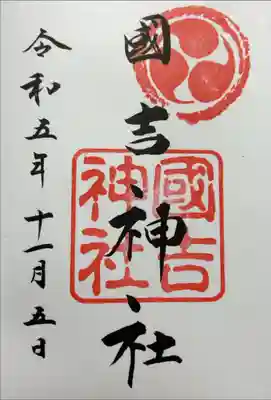 國吉神社
國吉神社
令和五年十一月五日